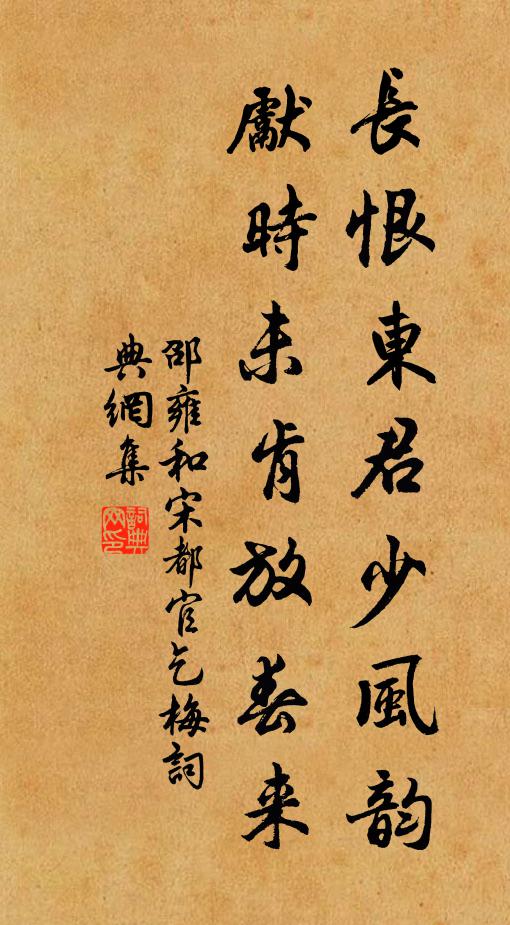 長恨東君少風韵
獻時未肯放春来
邵雍和宋都官乞梅詞
典網集
詞典网印